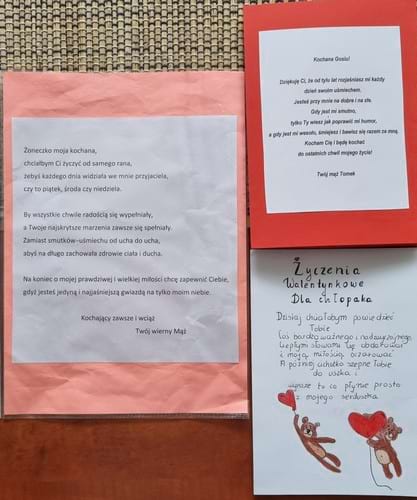 Żoneczko moja kochana,
chciałbym Ci życzyć od samego rana,
żebyś każdego dnia widziała we mnie przyjaciela,
czy to piątek, środa czy niedziela.
By wszystkie chwile radością się wypełniały,
a Twoje najskrytsze marzenia zawsze się spełniały.
Zamiast smutków–uśmiechu od ucha do ucha,
abyś na długo zachowała zdrowie ciała i ducha.
Na koniec o mojej prawdziwej i wielkiej miłości chcę zapewnić Ciebie,
gdyż jesteś jedyną i najjaśniejszą gwiazdą na tylko moim niebie.
Kochający zawsze i wciąż
Twój wierny Mąż
Kochana Gosiu!
Dziękuję Ci, że od tylu lat rozjaśniasz mi każdy
dzień swoim uśmiechem.
Jesteś przy mnie na dobre i na złe.
Gdy jest mi smutno,
tylko Ty wiesz jak poprawić mi humor,
a gdy jest mi wesoło, śmiejesz i bawisz się razem ze mną.
Kocham Cię i będę kochać
do ostatnich chwil mojego życia!
Twój mąż Tomek
Życzenia
Walentynkowe
Dla chłopaka
Dzisiaj chciałabym powiedzieć
Tobie
Coś bardzo ważnego i nadzwyczajnego
Ciepłymi słowami Cię obdarować
i moją miłością oczarować.
A później cichutko szepnę Tobie
do uszka
to co płynie prosto
z mojego serduszka